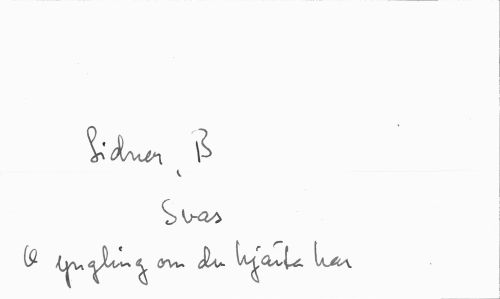 Sidner, B
Svas
O yngling om du hjärta har